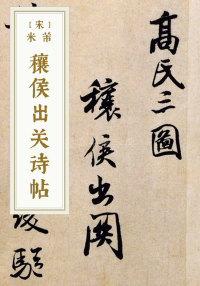 [宋]
米芾
穰侯出关诗帖
髙氏三圖
穰侯出關